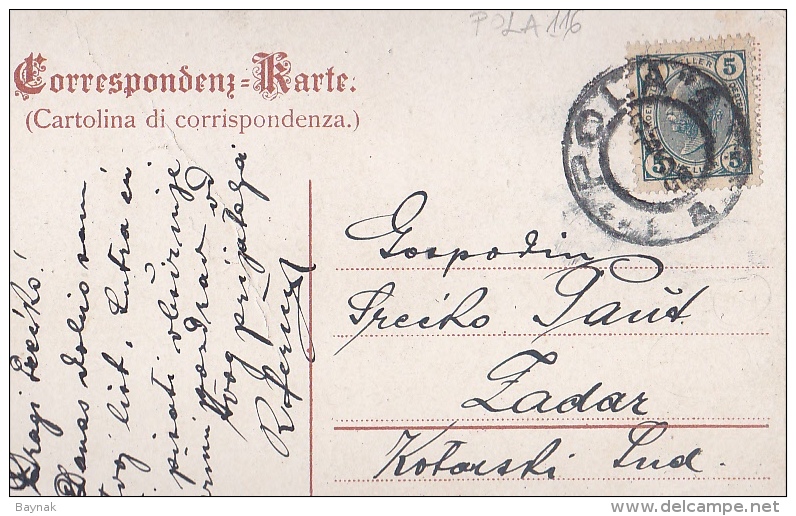 POLA 116
Correspondenz-Karte.
(Cartolina di corrispondenza.)
5 HELLER 5
5 5
POLA
Dragi Srećko!
Danas dobio sam
tvoj list, sutra ću
pisati obširnije
primi pozdrav od
tvog prijatelja
Gospodin
Srećko
Zadar
Kotarski Sud.
Baynak
delcampe.net